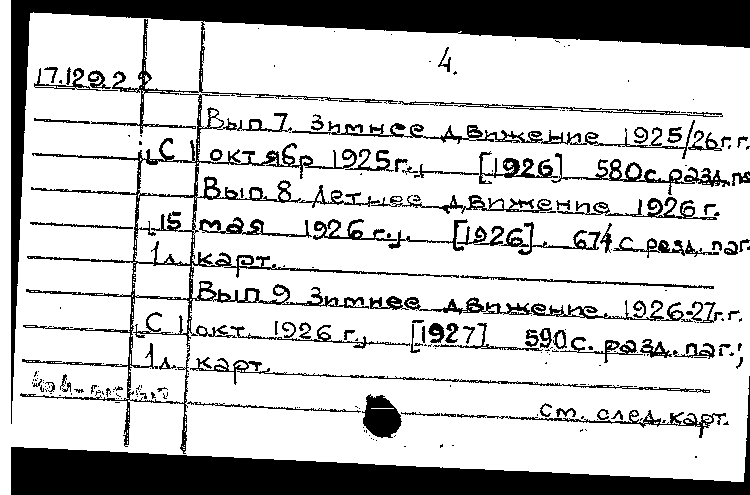 4.
17.129.2 2
Вып 7. Зимнее движение 1925/26 г.г.
С 1 октябр 1925 г., [1926] 580 с. разд. па
Вып. 8. Летнее движение 1926 г.
15 мая 1926 г., [1926]. 674 с разд. паг.
1 л. карт.
Вып 9 Зимнее движение. 1926-27 г.г.
С 1 окт. 1926 г., [1927] 590 с. разд. паг.;
1 л. карт.
См. след. карт.